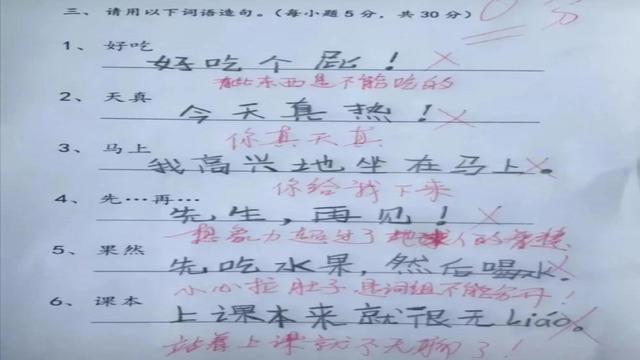 三、请用以下词语造句。(每小题5分，共30分) 0分
1、好吃
好吃个屁！
有些东西是不能吃的
2、天真
今天真热！
你真天真
3、马上
我高兴地坐在马上。
你给我下来
4、先…再…
先生，再见！
想象力超过了地球人的智慧
5、果然
先吃水果，然后喝水。
小心拉肚子 是词组不能分开！
6、课本
上课本来就很无Liáo。
站着上课就不无聊了！